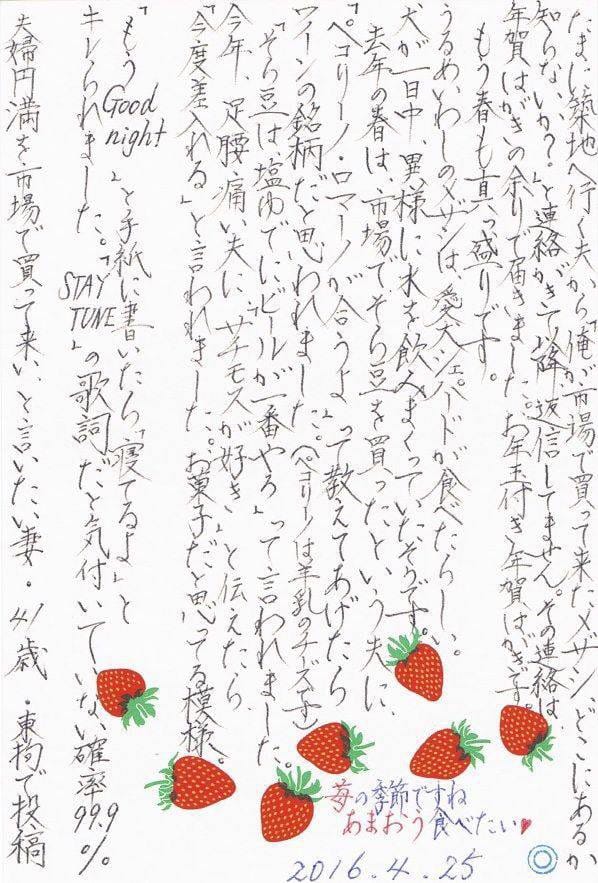 たまに築地へ行く夫から「俺が市場で買って来たメザシ、どこにあるか
知らないか?」と連絡がきて以降、返信してません。その連絡は
年賀はがきの余りで届きました。お年玉付き年賀はがきです。
もう春も真っ盛りです。
うるめいわしのメザシは、愛犬シェパードが食べたらしい。
犬が一日中、異様に水を飲みまくっていたそうです。
去年の春は、市場でそら豆を買ったという夫に、
「ペコリーノ・ロマーノが合うよ」って教えてあげたら
ワインの銘柄だと思われました。(ペコリーノは羊乳のチーズです)
「そら豆は塩ゆでにビールが一番やろ」って言われました。
今年、足腰痛い夫に、「サチモスが好き」と伝えたら
「今度差入れる」と言われました。お菓子だと思ってる模様。
「もうGood night」と手紙に書いたら「寝てるよ」と
キレられました。「STAY TUNE」の歌詞だと気付いていない確率99.9%
夫婦円満を市場で買って来い、と言いたい妻・41歳・東拘で投稿
苺の季節ですね
あまおう食べたい♥
2016.4.25